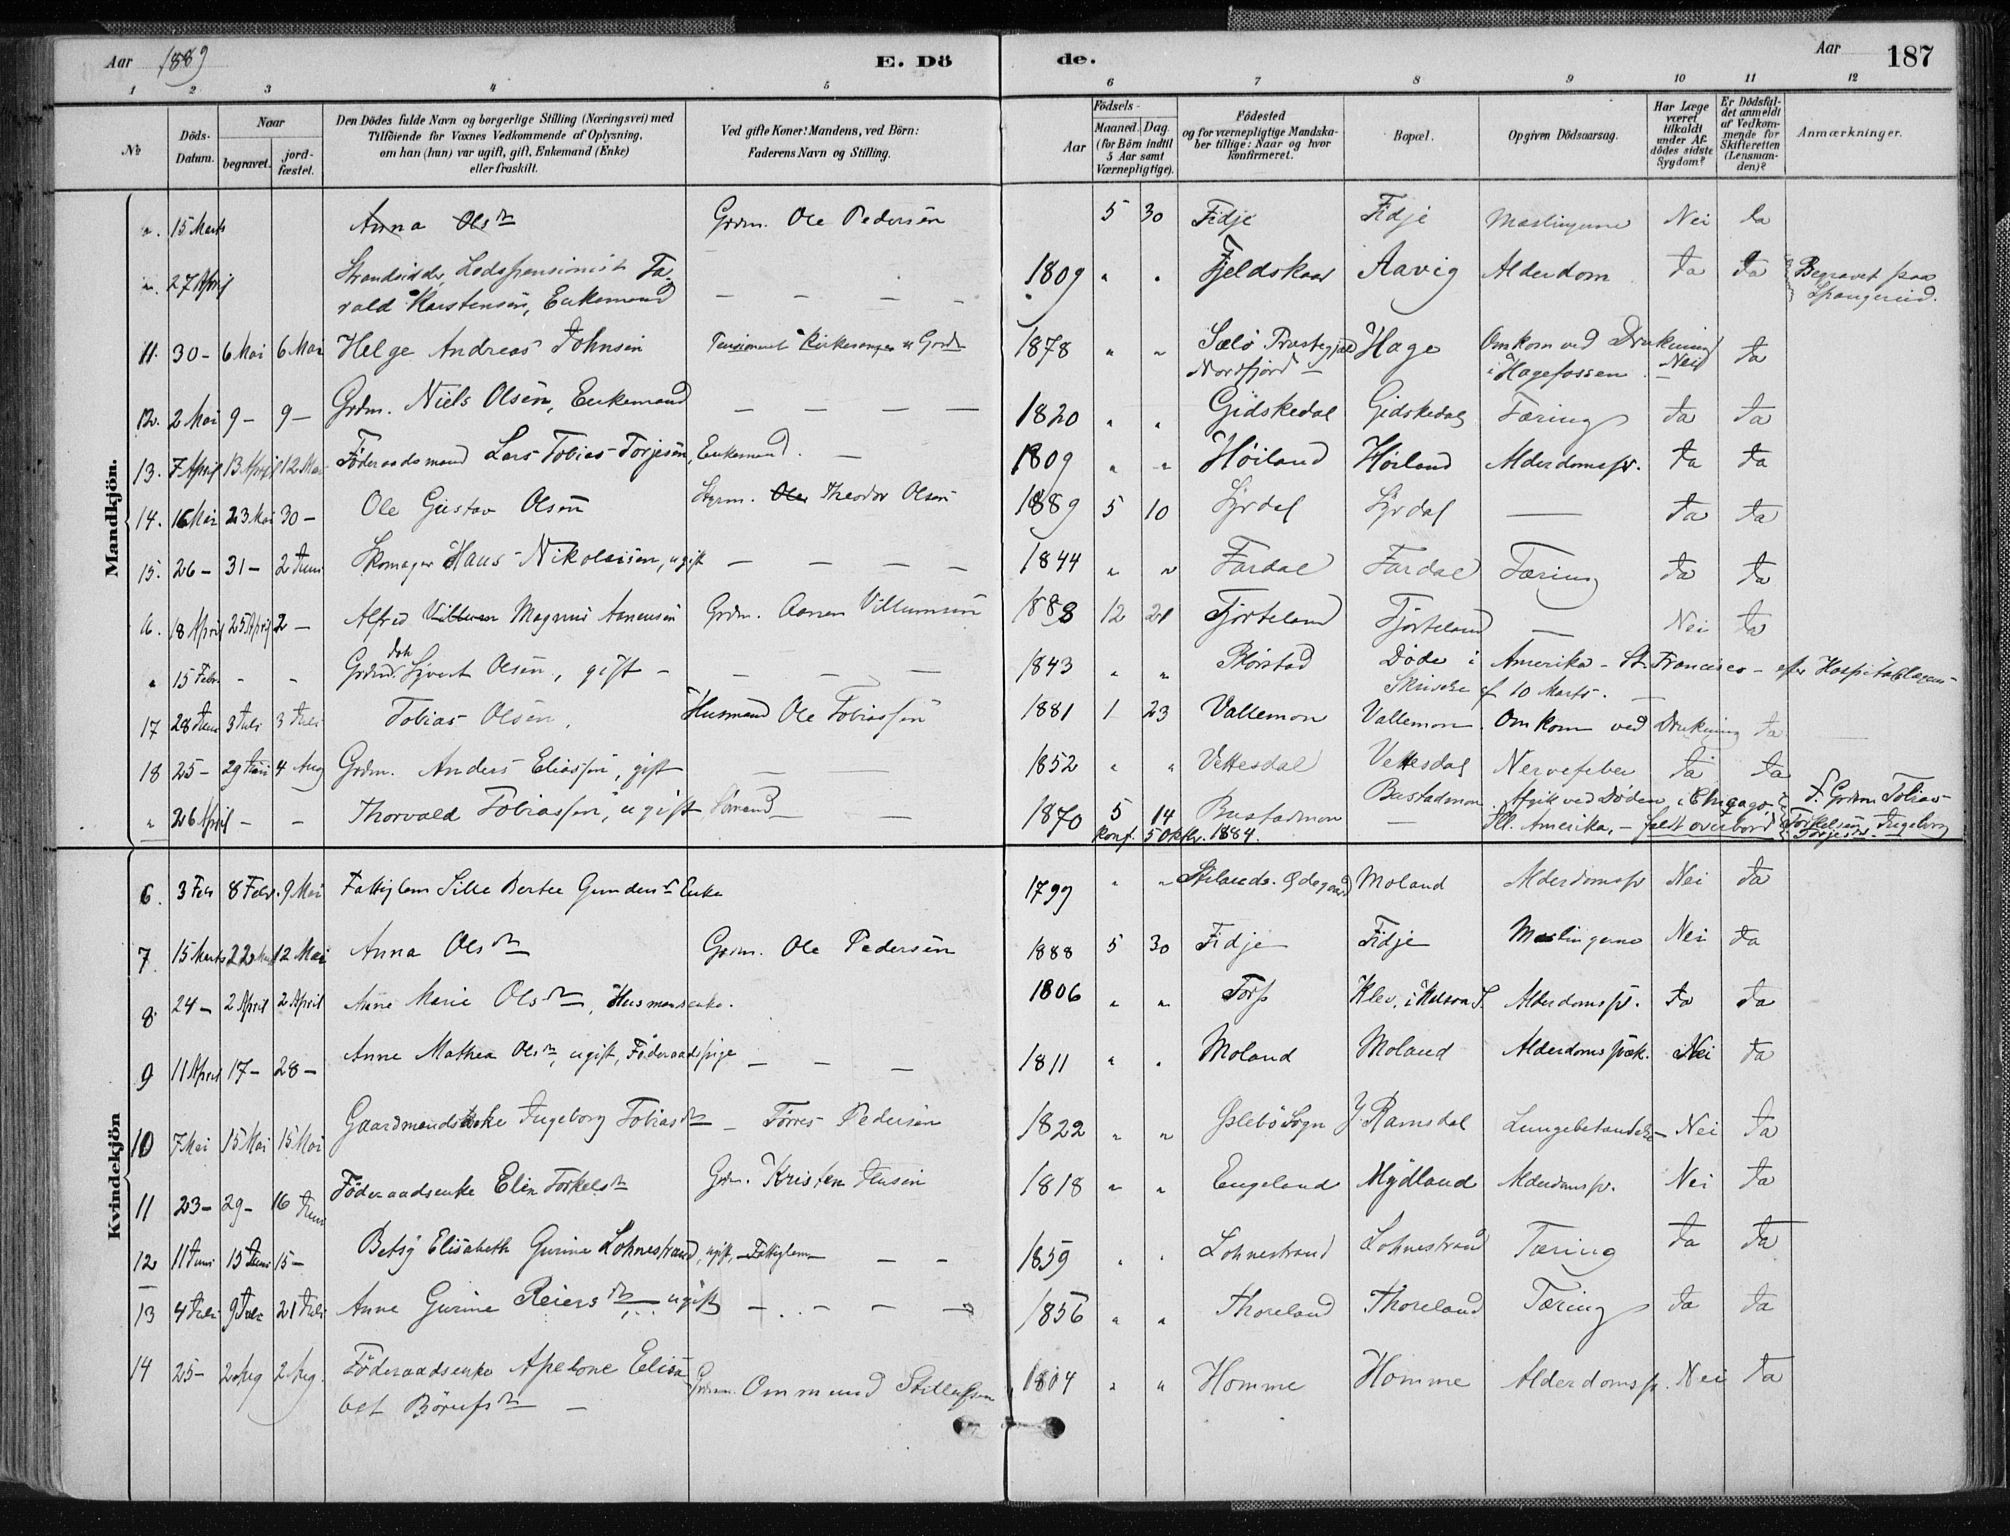 Aar 1889 E. Dö de. Aar 187
1 2 3 4 5 6 7 8 9 10 11 12
№ Döds-Datum. Naar begravet. jordfæstet. Den Dödes fulde Navn og borgerlige Stilling (Næringsvei) med Tilföiende for Voxnes Vedkommende af Oplysning, om han (hun) var ugift, gift, Enkemand (Enke) eller fraskilt. Ved gifte Koner: Mandens, ved Börn: Faderens Navn og Stilling. Födsels- Aar Maaned. Dag. (for Börn indtil 5 Aar samt Værnepligtige). Födested og for værnepligtige Mandskaber tillige: Naar og hvor konfirmeret. Bopæl. Opgiven Dödsaarsag. Har Læge været tilkaldt under Afdödes sidste Sygdom? Er Dödsfaldet anmeldt af Vedkommende for Skifteretten (Lensmanden)? Anmærkninger.
Mandkjön.
". 15 Marts Anna Olsdtr Grdm. Ole Pedersen 5 30 Fidje Fidje Mæslingerne Nei Ja
". 27 April Strandsidder, Lodspensionist Ta-
rald Karstensen, Enkemand — — — — 1809 " " Fjeldskaar Aavig Alderdom Ja Ja Begravet paa
Spangereid.
11. 30 - 6 Mai 6 Mai Helge Andreas Johnsen Pensioneret Kirkesanger & Grdm 1878 " " Selø Præstegjæld Hage Omkom ved Drukning
Nordfjord i Hagefossen. Nei Ja
12. 2 Mai 9 - 9 - Grdm. Niels Olsen, Enkemand — — — — 1820 " " Gidskedal Gidskedal Tæring Ja Ja
13. 7 April 13 April 12 Mai Föderaadsmand Lars Tobias Torjesen, Enkemand. — 1809 " " Høiland Høiland Alderdomssv. Ja Ja
14. 16 Mai 23 Mai 30 - Ole Gustav Olsen Styrm. Ole Theodor Olsen 1889 5 10 Lyrdal Lyrdal — Ja Ja
15. 26 - 31 - 2 Juni Skomager Hans Nikolaisen, ugift — — — — 1844 " " Fardal Fardal Tæring Ja Ja
16. 18 April 25 April 2 - Alfred Villum Magnus Aanensen Grdm. Aanen Villumsen 1888 12 21 Fjorteland Fjorteland — Nei Ja
" 15 Febr. - - Grdmd. Syvert Olsen, gift - — — — 1843 " " Døde i Amerika - St. Francisco - efter
Skrivelse af 10 Marts. —
17 28 Juni 3 Juli 3 Juli Tobias Olsen, Husmand Ole Tobiassen 1881 1 23 Vallemon Vallemon Omkom ved Drukning Ja —
18 25 - 29 Juni 4 Aug Grdm. Anders Eliassen, gift — — 1852 " " Vettesdal Vettesdal Nervefeber Ja Ja
" 26 April - - Thorvald Tobiassen, ugift Sømand — — 1870 5 14 Bustadmon Bustadmon. Afgik ved Døden i Chicago, F. Grdm Tobias
konf. 5 Oktbr. 1884. — Ill. Amerika, - faldt overbord Torkelsen - Ingeborg
Torjesdtr.
Kvindekjön
6. 3 Febr 8 Febr. 9 Mai Fattiglem Sille Bertee Gundersdtr Enke 1799 " " Stilands. Ødegaard Moland Alderdomssv Nei Ja
7. 15 Marts 22 Marts 12 Mai Anna Olsdtr Grdm. Ole Pedersen 1888 5 30 Fidje Fidje Mæslingerne Nei Ja
8. 24 - 2 April 2 April Anne Marie Olsdtr, Husmandsenke. 1806 " " Torp Klev, i Halsaa S. Alderdomssv. Ja Ja
9 11 April 17 - 28 - Anne Mathea Olsdtr, ugift, Föderaadspige — — — 1811 " " Moland Moland Alderdomssvæk. Nei Ja
10 7 Mai 15 Mai 15 Mai Gaardmandsenke Ingeborg Tobiasdtr — Tørres Pedersen 1822 " " Øslebø Sogn Y. Ramsdal Lungebetændelse - Nei Ja
11 23 - 29 - 16 Juni Föderaadsenke Elen Torkelsdtr Grdm. Kristen Jensen 1818 " " Engeland Mydland Alderdomssv. Nei Ja
12 11 Juni 15 Juni 15 - Betsy Elisabeth Gurine Lohnestrand, ugift, - Fattiglem — — 1859 " " Lohnestrand Lohnestrand Tæring Ja Ja
13 4 Juli 9 Juli 21 Juli Anne Gurine Reiersdtr ugift — — — — 1856 " " Thoreland Thoreland Tæring Ja Ja
14 25 - 2 Aug 2 Aug. Föderaadsenke Apelone Elisa-
bet Börufsdtr — Grdm. Ommund Stillufsen 1804 " " Homme Homme Alderdomssv. Nei Ja